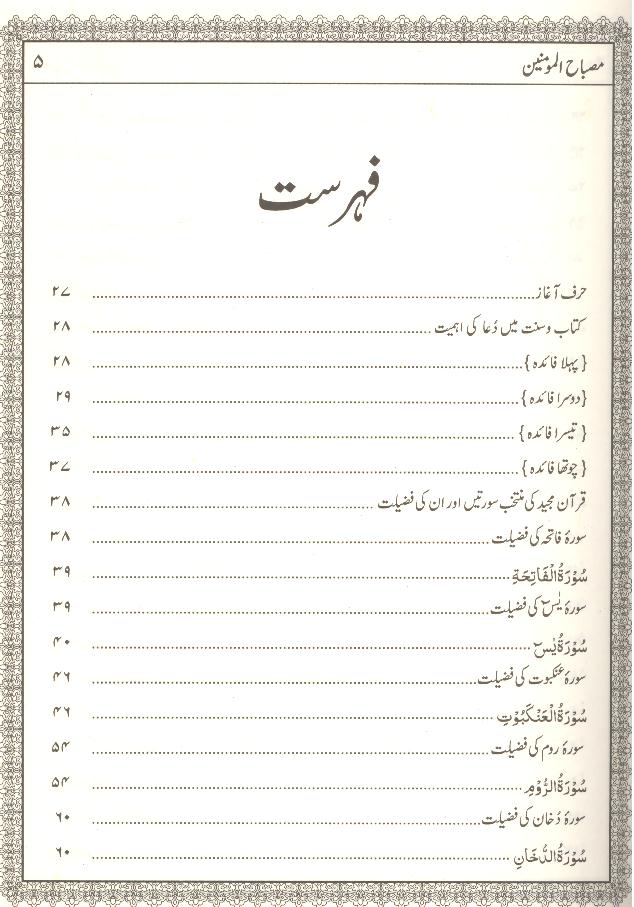 مصباح المومنین ۵
فہرست
حرف آغاز ۲۷
کتاب وسنت میں دُعا کی اہمیت ۲۸
{پہلا فائدہ} ۲۸
{دوسرا فائدہ} ۲۹
{تیسرا فائدہ} ۳۵
{چوتھا فائدہ} ۳۷
قرآن مجید کی منتخب سورتیں اور ان کی فضیلت ۳۸
سورۂ فاتحہ کی فضیلت ۳۸
سُوْرَۃُ الْفَاتِحَۃِ ۳۹
سورۂ یٰسٓ کی فضیلت ۳۹
سُوْرَۃُ یٰسٓ ۴۰
سورۂ عنکبوت کی فضیلت ۴۶
سُوْرَۃُ الْعَنْکَبُوْتِ ۴۶
سورۂ روم کی فضیلت ۵۴
سُوْرَۃُ الرُّوْمِ ۵۴
سورۂ دُخان کی فضیلت ۶۰
سُوْرَۃُ الدُّخَانِ ۶۰